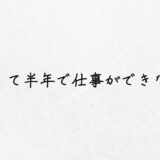 て半年で仕事ができ